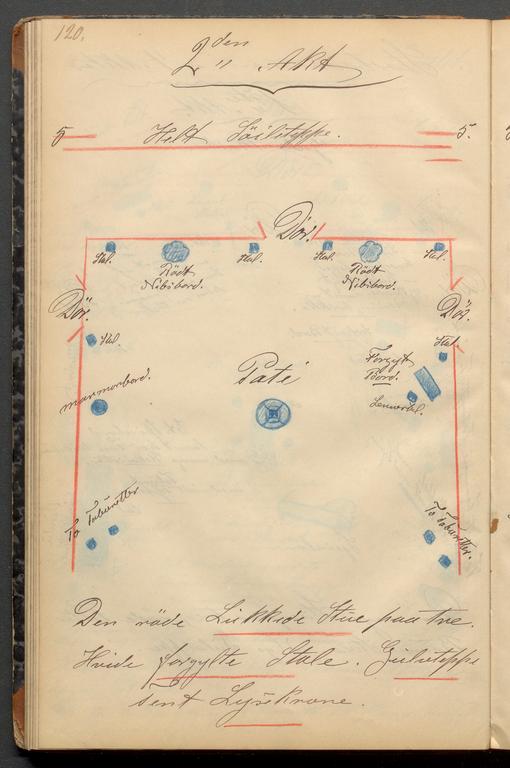 120.
2den Akt
5 Helt Söiletæppe. 5.
Dör.
Stol. Stol. Stol. Stol.
Rödt
Nibibord.
Rödt
Nibibord.
Dör. Dör.
Stol. Stol.
Forgylt
Bord.
marmorbord. Paté
Lænestol.
To Tabouretter
To Tabouretter.
Den röde Lukkede Stue paa tre.
Hvide forgylte Stole. Gulvteppe
Tent Lysekrone.